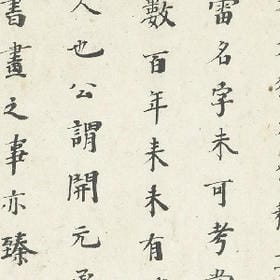 雷名字未可考
數百年来未有
人也公謂開元
書畫之事亦臻